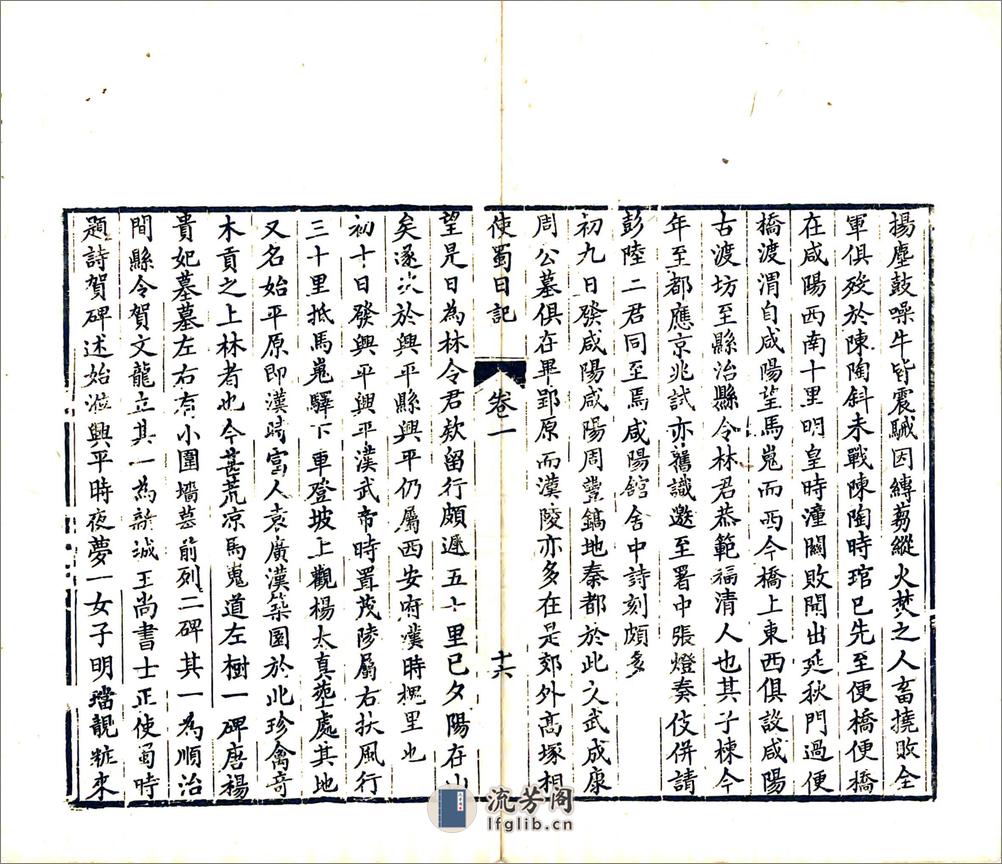 揚塵鼓噪牛皆震駴因縳芻縱火焚之人畜撓敗全
軍俱歿於陳陶斜未戰陳陶時琯已先至便橋便橋
在咸陽西南十里明皇時潼關敗閒出延秋門過便
橋渡渭自咸陽望馬嵬而西今橋上東西俱設咸陽
古渡坊至縣治縣令林君恭範福清人也其子棟今
年至都應京兆試亦舊識邀至署中張燈奏伎併請
彭陸二君同至焉咸陽館舍中詩刻頗多
初九日發咸陽咸陽周豐鎬地秦都於此文武成康
周公墓俱在畢郢原而漢陵亦多在是郊外高塚相
使蜀日記 卷一 十六
望是日為林令君欸留行頗遲五十里已夕陽在山
矣遂次於興平縣興平仍屬西安府漢時槐里也
初十日發興平興平漢武帝時置茂陵屬右扶風行
三十里抵馬嵬驛下車登坡上觀楊太真塟處其地
又名始平原即漢時富人袁廣漢築園於此珍禽奇
木貢之上林者也今甚荒凉馬嵬道左樹一碑唐楊
貴妃墓墓左右有小圍墻墓前列二碑其一為順治
間縣令賀文龍立其一為新城王尚書士正使蜀時
題詩賀碑述始涖興平時夜夢一女子明璫靚粧來
流芳阁
lfglib.cn